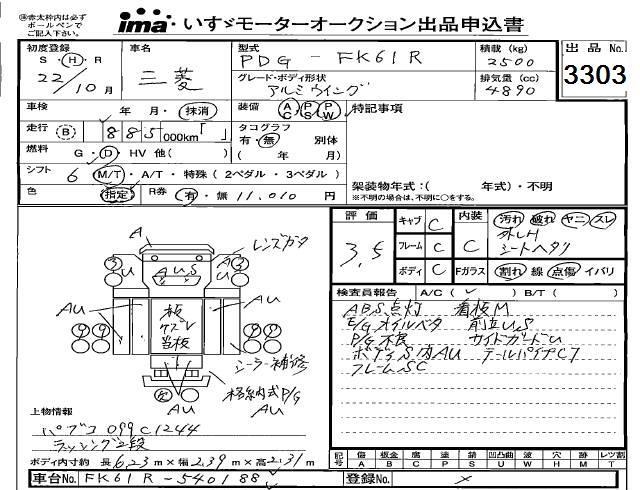 ㊟赤太枠内は必ず
ボールペンで
ご記入下さい。
ima・いすゞモーターオークション出品申込書
初度登録
S・H・R
22/10月
車名
三菱
型式
PDG-FK61R
グレード・ボディ形状
アルミウイング
積載(kg)
2500
排気量(cc)
4890
出品No.
3303
車検 年 月・抹消
装備 AC PS PW
特記事項
走行 B 885,000km「 」
タコグラフ
有・無 別体
( 年 月)
燃料 G・D・HV 他( )
シフト 6 M/T・A/T・特殊(2ペダル・3ペダル)
色 指定 R券 有・無 11,010 円
架装物年式:( 年式)・不明
※不明の場合は、不明に○をする。
評価
3.5
キャブ C
フレーム C
ボディ C
内装 C
Fガラス
汚れ 破れ ヤニ スレ
シートヘタリ
割れ 線 点傷 イバリ
検査員報告 A/C( ✓ ) B/T( )
ABS点灯 看板M
E/Gオイルベタ 前立US
P/G不良 サイドガードU
ボディS内AU テールパイプC7
フレームSC
A
レンズガタ
AUS
U
U
AU
AU
板
当板
シーラー補修
格納式P/G
AU
AU
上物情報
パブコ 099C1244
ラッシング2段
ボディ内寸約 長6.23m×幅2.39m×高2.31m
記号
傷 板金 腐 塗 錆 凹凸曲 波 穴 跡 レツ割
A B C P S U W H M T
車台No. FK61R-540188
登録No. ×